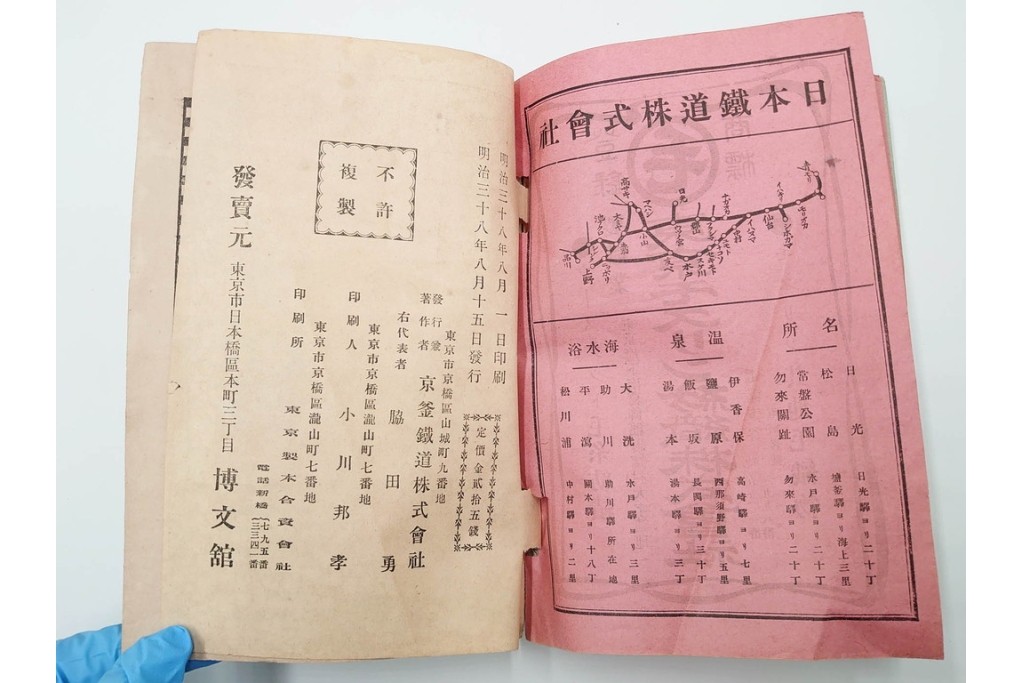 日本鐵道株式會社
名所
日光 日光驛ヨリ二十丁
松島 鹽釜驛ヨリ海上三里
常盤公園 水戸驛ヨリ二十丁
勿來關趾 勿來驛ヨリ二十丁
溫泉
伊香保 高崎驛ヨリ七里
鹽原 西那須野驛ヨリ五里
飯坂 長岡驛ヨリ三十丁
湯本 湯本驛ヨリ三丁
海水浴
大洗 水戸驛ヨリ三里
助川 助川驛所在地
平潟 關本驛ヨリ十八丁
松川浦 中村驛ヨリ二里
青モリ
モリオカ
イハキリ
シホガマ
仙台
イハヌマ
中村
ナガオカ
郡山
日光
ウツノ宮
小山
水戸
スケ川
セキモト
ユモト
マバシ
高サキ
大ミヤ
上野
品川
明治三十八年八月一日印刷
明治三十八年八月十五日發行
不許複製
定價金貳拾五錢
東京市京橋區山城町九番地
發行兼著作者 京釜鐵道株式會社
右代表者 脇田勇
東京市京橋區瀧山町七番地
印刷人 小川邦孝
東京市京橋區瀧山町七番地
印刷所 東京製本合資會社
電話新橋(七九五番 三三四一番
發賣元 東京市日本橋區本町三丁目 博文舘